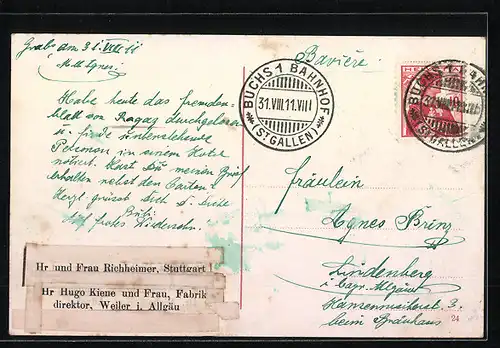 Grabs am 31. VIII 11
M. ll Agnes!
Habe heute das fremden-
blatt von Ragaz durchgelesen
u. finde untenstehende
Personen in einem Hotel
notiert. Hast Du meinen Brief
erhalten nebst den Karten?
Herzl. grüsst Dich
frohes Wiedersehn.
Hr und Frau Richheimer, Stuttgart
Hr Hugo Kiene und Frau, Fabrik
direktor, Weiler i. Allgäu
BUCHS 1 BAHNHOF
31.VIII.11.VIII
(ST. GALLEN)
Bavière.
BUCHS 1 BAHNHOF
31.VIII.11
(ST. GALLEN)
Fräulein
Agnes Brinz
Lindenberg
i. bayr. Allgäu
3.
beim Bräuhaus
24